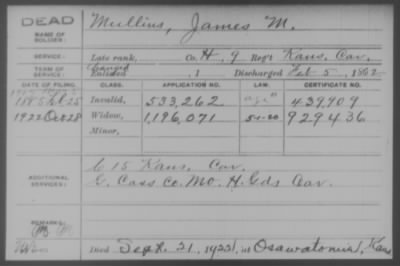 DEAD
NAME OF SOLDIER: Mullins, James M.
SERVICE: Late rank, Co. H, 9 Reg't Kans. Cav.
TERM OF SERVICE: Enlisted , 1 Discharged Feb 5, 1862
DATE OF FILING. CLASS. APPLICATION NO. LAW. CERTIFICATE NO.
1885 25 Invalid, 533,262 439,909
1922 Oct 28 Widow, 1,196,071 5-1-20 929436
Minor,
ADDITIONAL SERVICES: C 15 Kans. Cav.
C. Cass Co. Mo. H. Gds Cav.
REMARKS:
Died Sept. 21, 1922, at Osawatomie, Kans